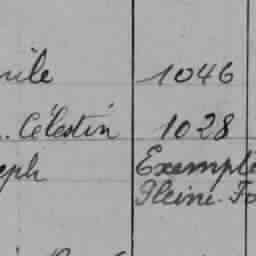 mile 1046
. Célestin 1028
eph Exempté
Pleine-Fo